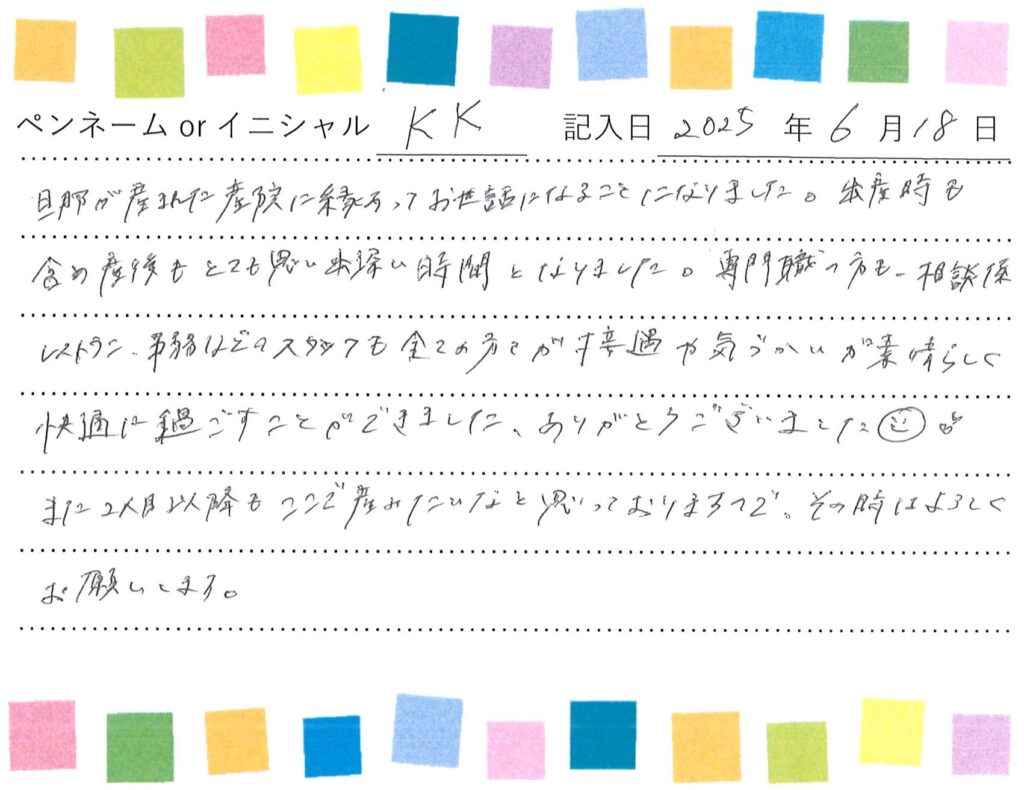 ペンネーム or イニシャル KK 記入日 2025 年 6 月 18 日
旦那が産まれた産院に縁あってお世話になることになりました。出産時も
含め産後もとても思い出深い時間となりました。専門職の方も、相談係
レストラン、事務などのスタッフも全ての方々が接遇や気づかいが素晴らしく
快適に過ごすことができました、ありがとうございました
また2人目以降もここで産みたいなと思っておりますので、その時はよろしく
お願いします。